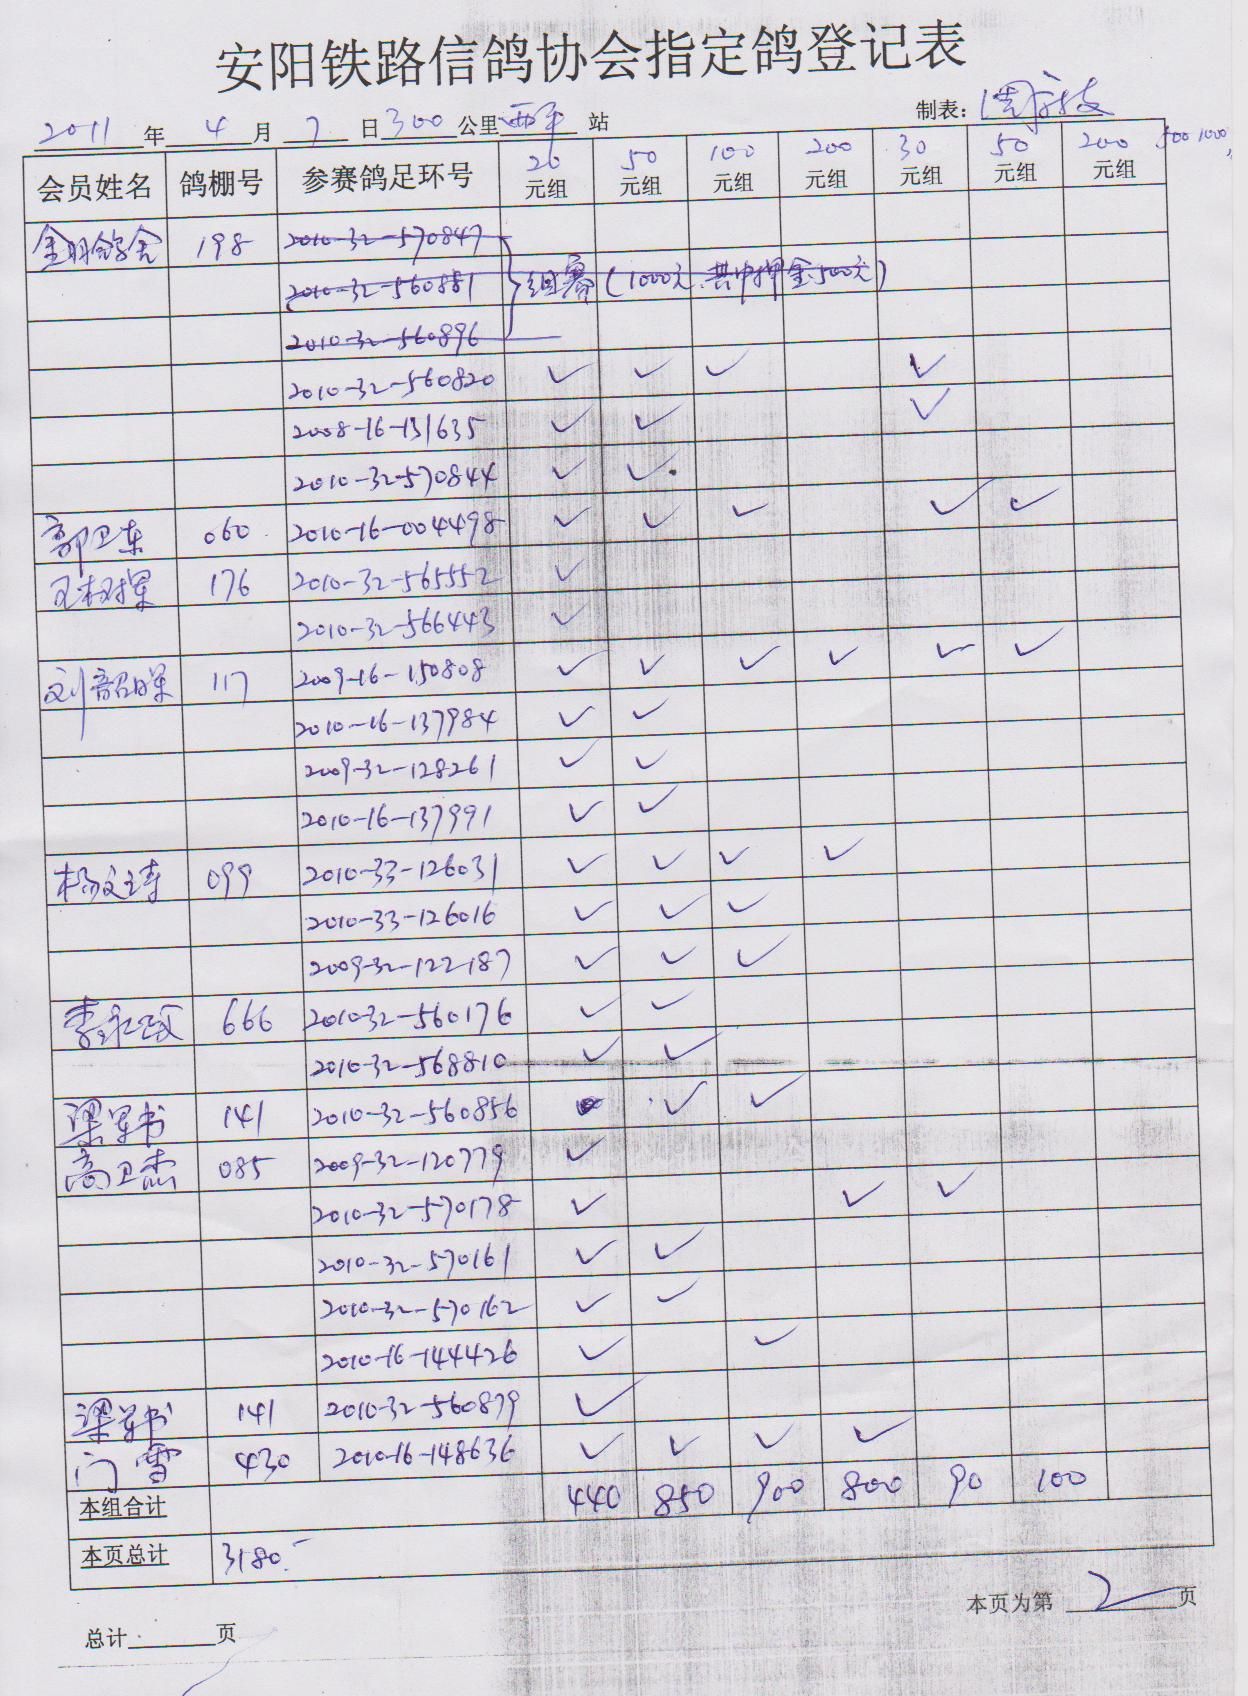 安阳铁路信鸽协会指定鸽登记表
2011年 4月 7日 300公里 西平 站 制表：
会员姓名 鸽棚号 参赛鸽足环号 20元组 50元组 100元组 200元组 30元组 50元组 200元组 500 1000
金明鸽舍 198 2010-32-570847
2010-32-560881 组赛(1000元.其中押金500元)
2010-32-560896
2010-32-560820 ✓ ✓ ✓ ✓
2008-16-131635 ✓ ✓ ✓
2010-32-570844 ✓ ✓
郭卫东 060 2010-16-004498 ✓ ✓ ✓ ✓ ✓
176 2010-32-565552 ✓
2010-32-566443 ✓
刘韶军 117 2009-16-150808 ✓ ✓ ✓ ✓ ✓ ✓
2010-16-137984 ✓ ✓
2009-32-128261 ✓ ✓
2010-16-137991 ✓ ✓
杨文涛 099 2010-33-126031 ✓ ✓ ✓ ✓
2010-33-126016 ✓ ✓ ✓
2009-32-122187 ✓ ✓ ✓
李永政 666 2010-32-560176 ✓ ✓
2010-32-568810 ✓ ✓
梁军书 141 2010-32-560856 ✓ ✓
高卫杰 085 2009-32-120779 ✓
2010-32-570178 ✓ ✓ ✓
2010-32-570161 ✓ ✓
2010-32-570162 ✓ ✓
2010-16-144426 ✓ ✓
梁军书 141 2010-32-560879 ✓
门雪 430 2010-16-148636 ✓ ✓ ✓ ✓
本组合计 440 850 900 800 90 100
本页总计 3180.-
本页为第 2 页
总计 页